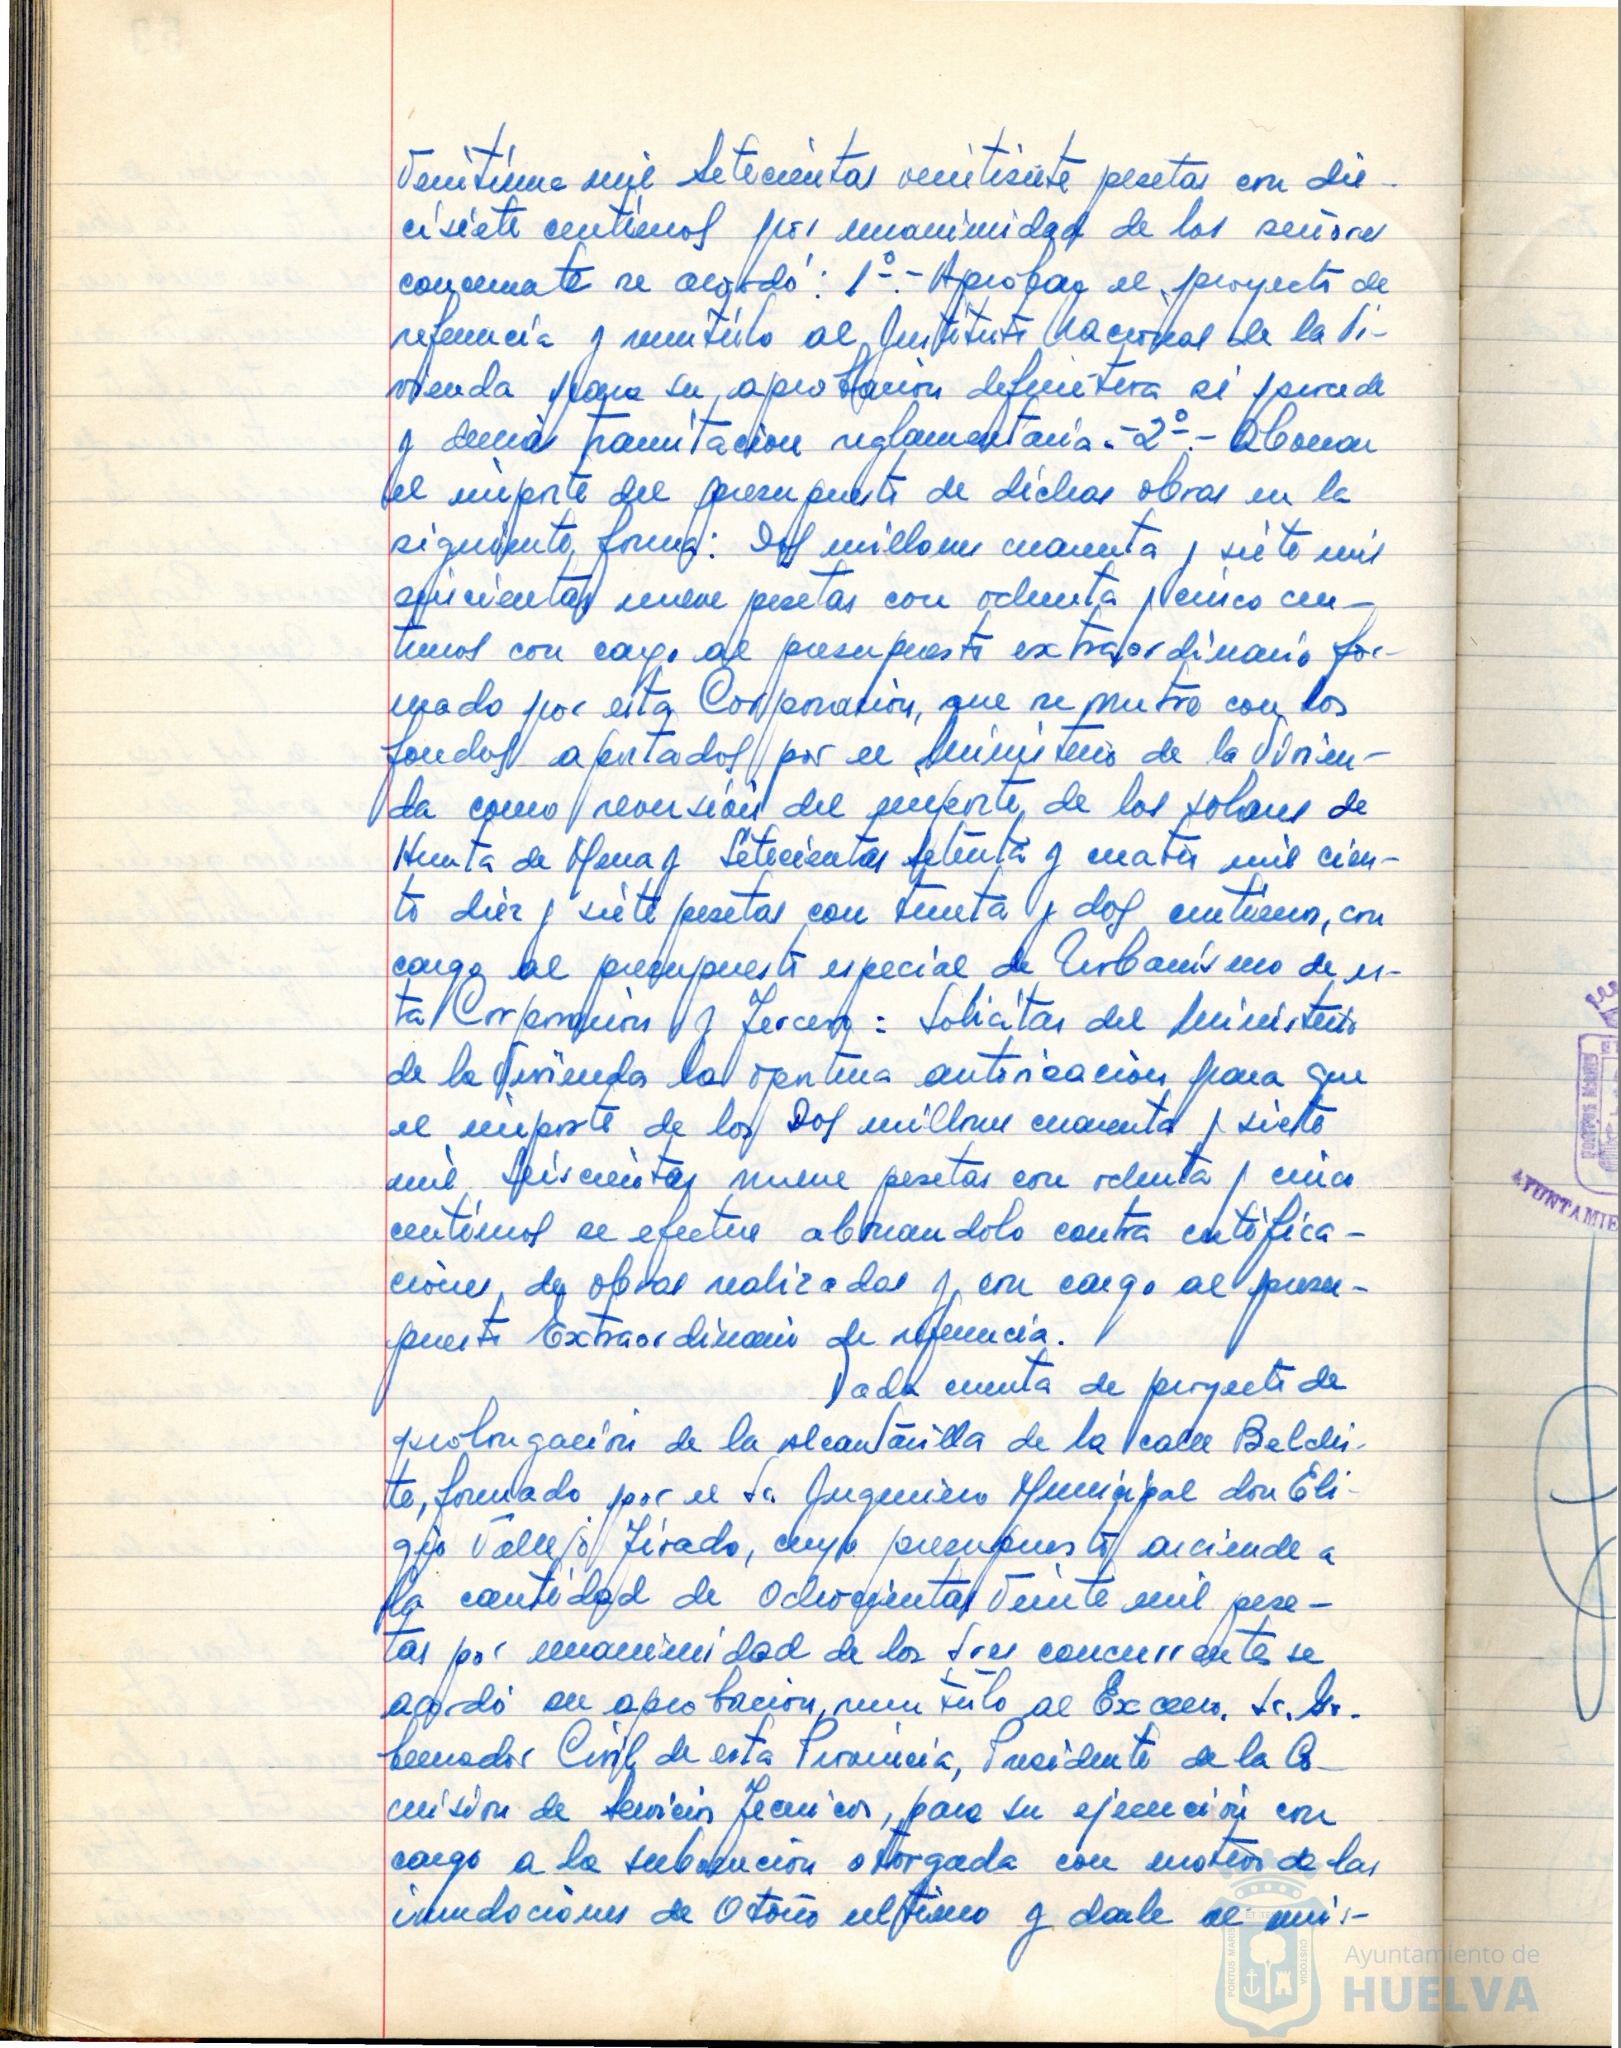 Veintiuna mil Setecientas veintisiete pesetas con die-
cisiete centimos por unanimidad de los señores
concurrente se acordó: 1º.- Aprobar el proyecto de
referencia y remitirlo al Instituto Nacional de la Vi-
vienda para su aprobacion definitiva si procede
y demás tramitacion reglamentaria.- 2º.- Abonar
el importe del presupuesto de dichas obras en la
siguiente forma: Dos millones cuarenta y siete mil
seiscientas nueve pesetas con ochenta y cinco cen-
timos con cargo al presupuesto extraordinario for-
mado por esta Corporacion, que se nutre con los
fondos aportados por el Ministerio de la Vivien-
da como reversión del importe de los solares de
Huerta de Mena y Setecientas setenta y cuatro mil cien-
to diez y siete pesetas con treinta y dos centimos, con
cargo al presupuesto especial de Urbanismo de es-
ta Corporacion y Tercero: Solicitar del Ministerio
de la Vivienda la oportuna autorizacion para que
el importe de los Dos millones cuarenta y siete
mil Seiscientas nueve pesetas con ochenta y cinco
centimos se efectue abonandolo contra certifica-
ciones de obras realizadas y con cargo al presu-
puesto Extraordinario de referencia.
Dada cuenta de proyecto de
prolongación de la alcantarilla de la calle Beldis-
te, formado por el Sr. Ingeniero Municipal don Eli-
gio Vallejo Tirado, cuyo presupuesto asciende a
la cantidad de Ochocientas Veinte mil pese-
tas por unanimidad de los Sres concurrentes se
acordó su aprobacion, remitirlo al Excmo. Sr. Go-
bernador Civil de esta Provincia, Presidente de la Co-
mision de Servicios Tecnicos, para su ejecución con
cargo a la subvencion otorgada con motivo de las
inundaciones de Otoño ultimo y darle al mis-
PORTUS MARIS
AYUNTAMIE
PORTUS MARIS ET TE CUSTODIA
Ayuntamiento de
HUELVA